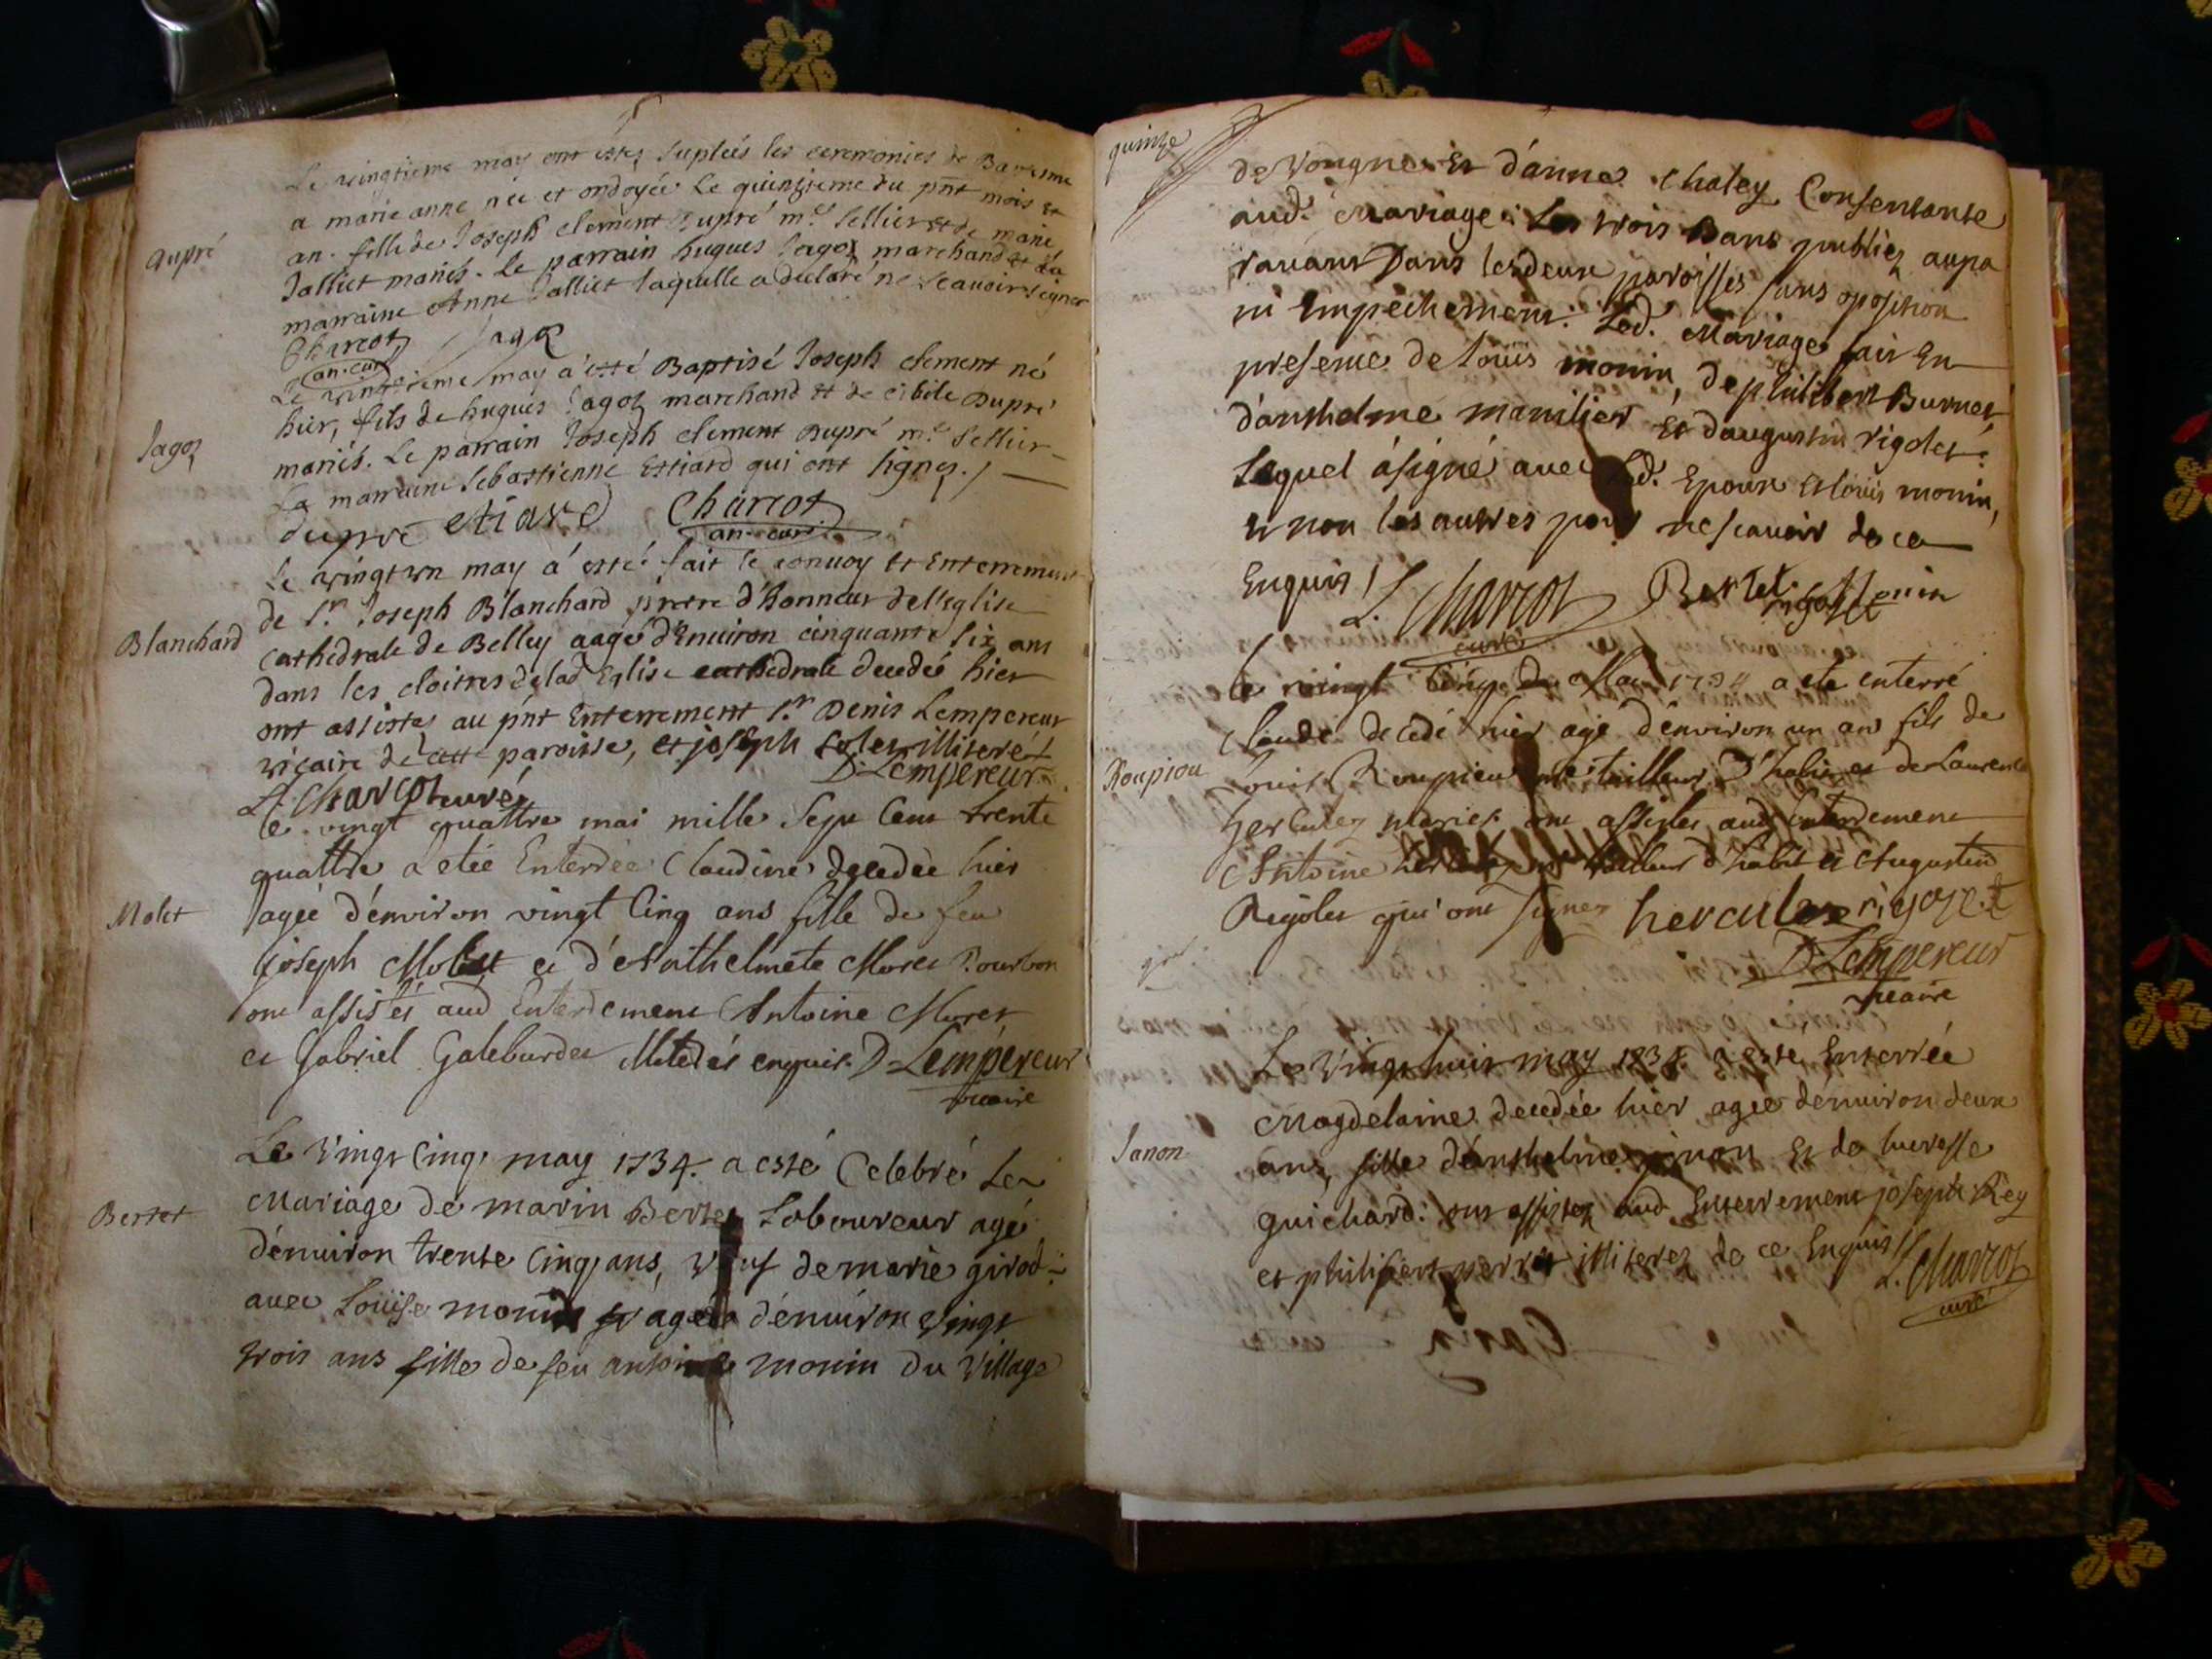 Le vingtieme may ont estez supleés les ceremonies de Baptesme
a marie anne née et ondoyée le quinzieme du pñt mois et
an. fille de Joseph clement Dupré me sellier et de marie
dupré
Jalliet mariés. Le parrain hugues Jagoz marchand et La
marraine Anne Jalliet laquelle a declaré ne scauoir signer
Charcot Jagoz
an. curé
Le vintieme may a esté Baptisé Joseph clement né
hier, fils de hugues Jagoz marchand et de cibile Dupré
Jagoz
mariés. Le parrain Joseph clement Dupré me sellier
La marraine Sebastienne Estiard qui ont signez./
dupre etiard Charcot
an. curé
Le vingt un may a esté fait le conuoy et Enterrement
de Sr Joseph Blanchard pretre d'honneur de l'eglise
Blanchard
cathedrale de Belley aagé d'Enuiron cinquante six ans
dans les cloitres de lad Eglise cathedrale decedé hier
ont assistez au pñt Enterrement Sr Denis Lempereur
vicaire de cette paroisse, et joseph illiteré
L. Charcot curé D. Lempereur
le vingt quattre mai mille Sept Cent trente
quattre a etée Enterrée Claudine decedée hier
Molet
agée d'environ vingt Cinq ans fille de feu
joseph Molet et d'Anthelmete Moret Bourbon
ont assistés aud Enterrement Antoine Moret
et Gabriel Galeburdet illiterés enquis. D Lempereur
vicaire
Le Vingt Cinq may 1734. a esté Celebré Le
Bertet
Mariage de marin Bertet Laboureur agé
d'enuiron trente Cinq ans, Veuf de marie girod
auec Louise monin agée d'enuiron Vingt
trois ans fille de feu antoine monin du Village
quinze
de Vongne et d'anne Chaley Consentante
aud. Mariage. Les trois Bans publiez aupa
rauant Dans les deux paroisses sans oposition
ni Empechement. Led. Mariage fait En
presence de Louis monin, de philibert Burnet,
d'anthelme manilier et d'augustin rigolet
Lequel a signé auec Led. Epoux et Louis monin,
et non les autres pour ne scauoir de ce
Enquis / L. Charcot Bertet Monin
curé rigolet
le vingt Cinq De Mai 1734 a ete enterré
Claude decedé hier agé d'environ un an fils de
Roupiou
Louis Roupiou me tailleur D'habit et de Laurence
Hercules mariés ont assistes aud Enterrement
Antoine hercules me tailleur d'habit et Augustin
Rigolet qui ont signez hercules rigolet
D Lempereur
vicaire
Le Vingt huit may 1734. a este Enterrée
Magdelaine decedée hier agée d'enuiron deux
Janon
ans, fille d'anthelme janon Et de lucresse
guichard. ont assistez aud Enterrement joseph Rey
et philibert perret illiterez de ce Enquis / L. Charcot
curé